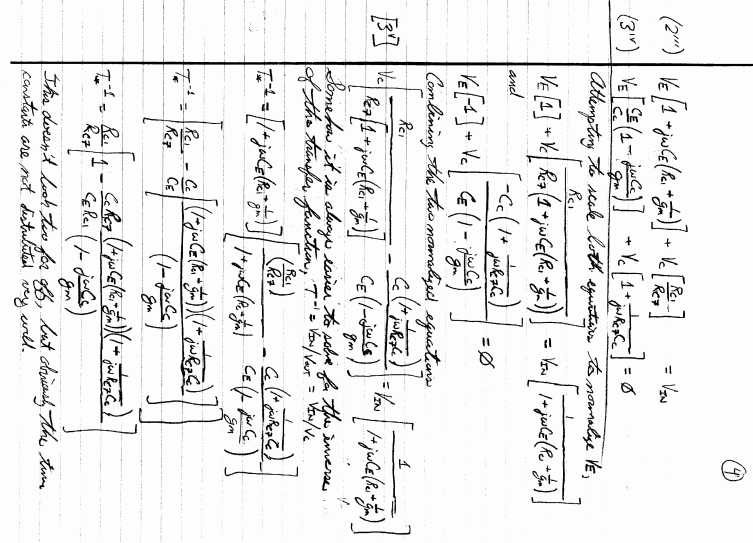 ④
(2''') V_E [1 + jωC_E (R_C1 + 1/g_m)] + V_C [R_C1/R_C7] = V_IN
(3^IV) V_E [C_E/C_C (1 - jωC_C/g_m)] + V_C [1 + 1/(jωR_C7C_C)] = Ø
Attempting to scale both equations to normalize V_E,
V_E [1] + V_C [R_C1 / (R_C7 (1 + jωC_E (R_C1 + 1/g_m)))] = V_IN [1 / (1 + jωC_E (R_C1 + 1/g_m))]
and
V_E [-1] + V_C [-C_C (1 + 1/(jωR_C7C_C)) / (C_E (1 - jωC_C/g_m))] = Ø
Combining the two normalized equations
[3^V] V_C [R_C1 / (R_C7 [1 + jωC_E (R_C1 + 1/g_m)]) - C_C (1 + 1/(jωR_C7C_C)) / (C_E (1 - jωC_C/g_m))] = V_IN [1 / (1 + jωC_E (R_C1 + 1/g_m))]
Somehow it is always easier to solve for the inverse
of the transfer function, T^-1 = V_IN/V_OUT = V_IN/V_C
T^-1 = [1 + jωC_E (R_C1 + 1/g_m)] [(R_C1/R_C7) / (1 + jωC_E (R_C1 + 1/g_m)) - C_C (1 + 1/(jωR_C7C_C)) / (C_E (1 - jωC_C/g_m))]
T^-1 = [R_C1/R_C7 - C_C/C_E [(1 + jωC_E (R_C1 + 1/g_m)) (1 + 1/(jωR_C7C_C)) / (1 - jωC_C/g_m)]]
T^-1 = R_C1/R_C7 [1 - C_C R_C7/(C_E R_C1) (1 + jωC_E (R_C1 + 1/g_m)) (1 + 1/(jωR_C7C_C)) / (1 - jωC_C/g_m)]
This doesn't look too far off, but obviously the time
constants are not distributed very well.